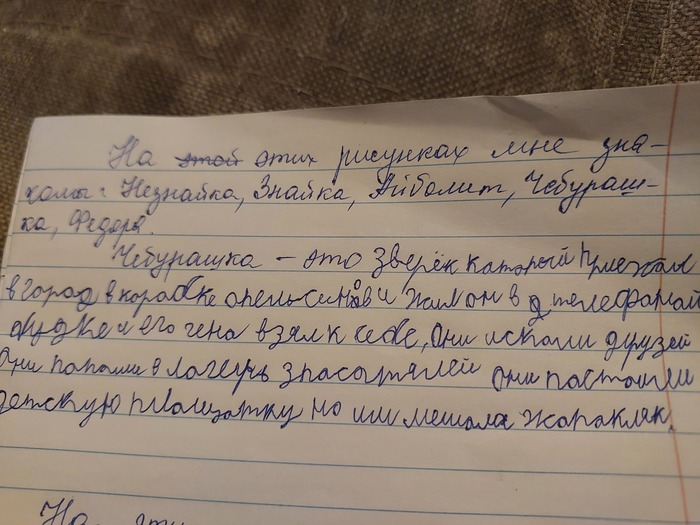 На этой этих рисунках мне зна-
комы: Незнайка, Знайка, Айболит, Чебураш-
ка, Федора.
Чебурашка - это зверёк каторый приехал
в город в коробке опельсинов и жил он в телефонай
будке и его гена взял к себе, Они искали друзей
Они попали в лагерь Они пастоили
детскую площатку но им мешала жаракляк.
На эти